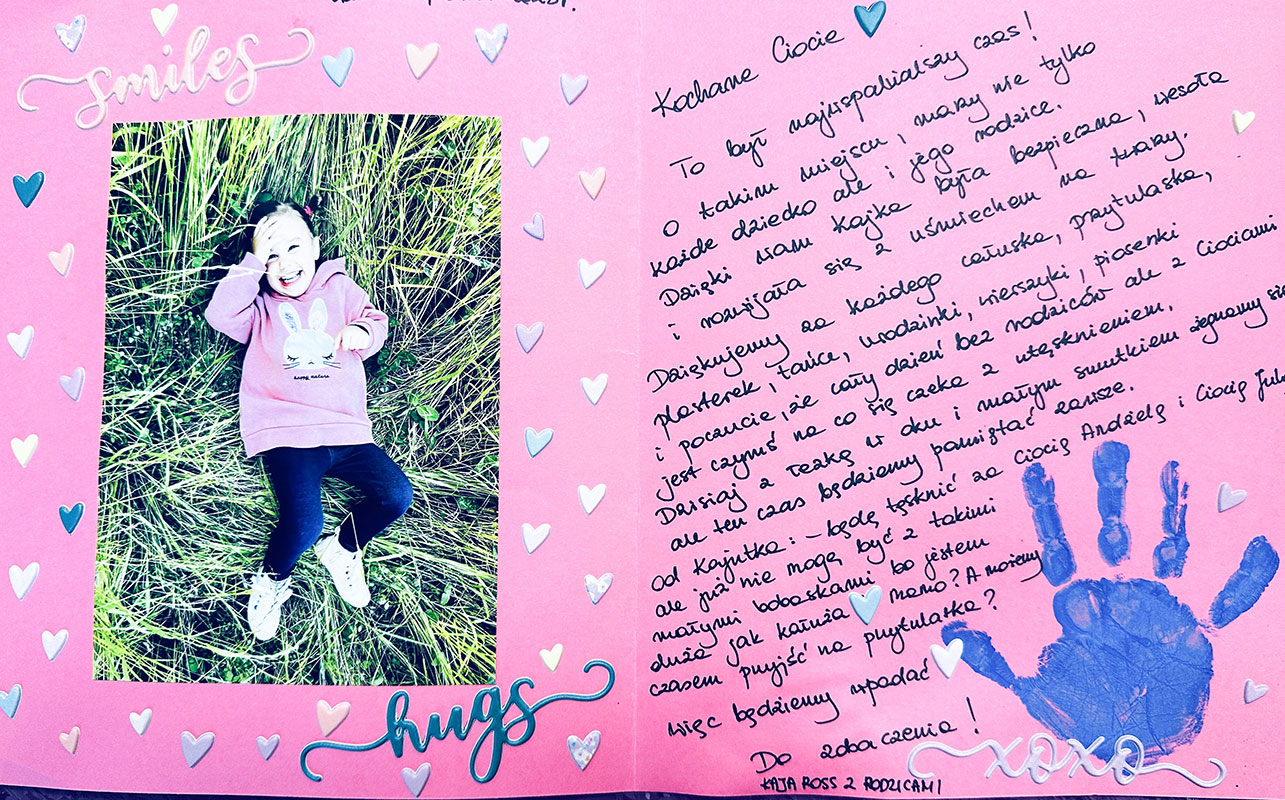 smiles
happy nature
hugs
Kochane Ciocie
To był najwspanialszy czas!
O takim miejscu, marzy nie tylko
każde dziecko ale i jego rodzice.
Dzięki Wam Kajka była bezpieczna, wesoła
i rozwijała się z uśmiechem na twarzy.
Dziękujemy za każdego całuska, przytulaska,
plasterek, tańce, urodzinki, wierszyki, piosenki
i poczucie, że cały dzień bez rodziców ale z Ciociami
jest czymś na co się czeka z utęsknieniem.
Dzisiaj z łezką w oku i małym smutkiem żegnamy się
ale ten czas będziemy pamiętać zawsze.
Od Kajutka: - będę tęsknić za Ciocią Andzelą i Ciocią
ale już nie mogę być z takimi
małymi bobaskami bo jestem
duża jak kałuża mamo? A możemy
czasem przyjść na przytulaska?
więc będziemy wpadać
Do zobaczenia!
KAJA ROSS Z RODZICAMI
xoxo